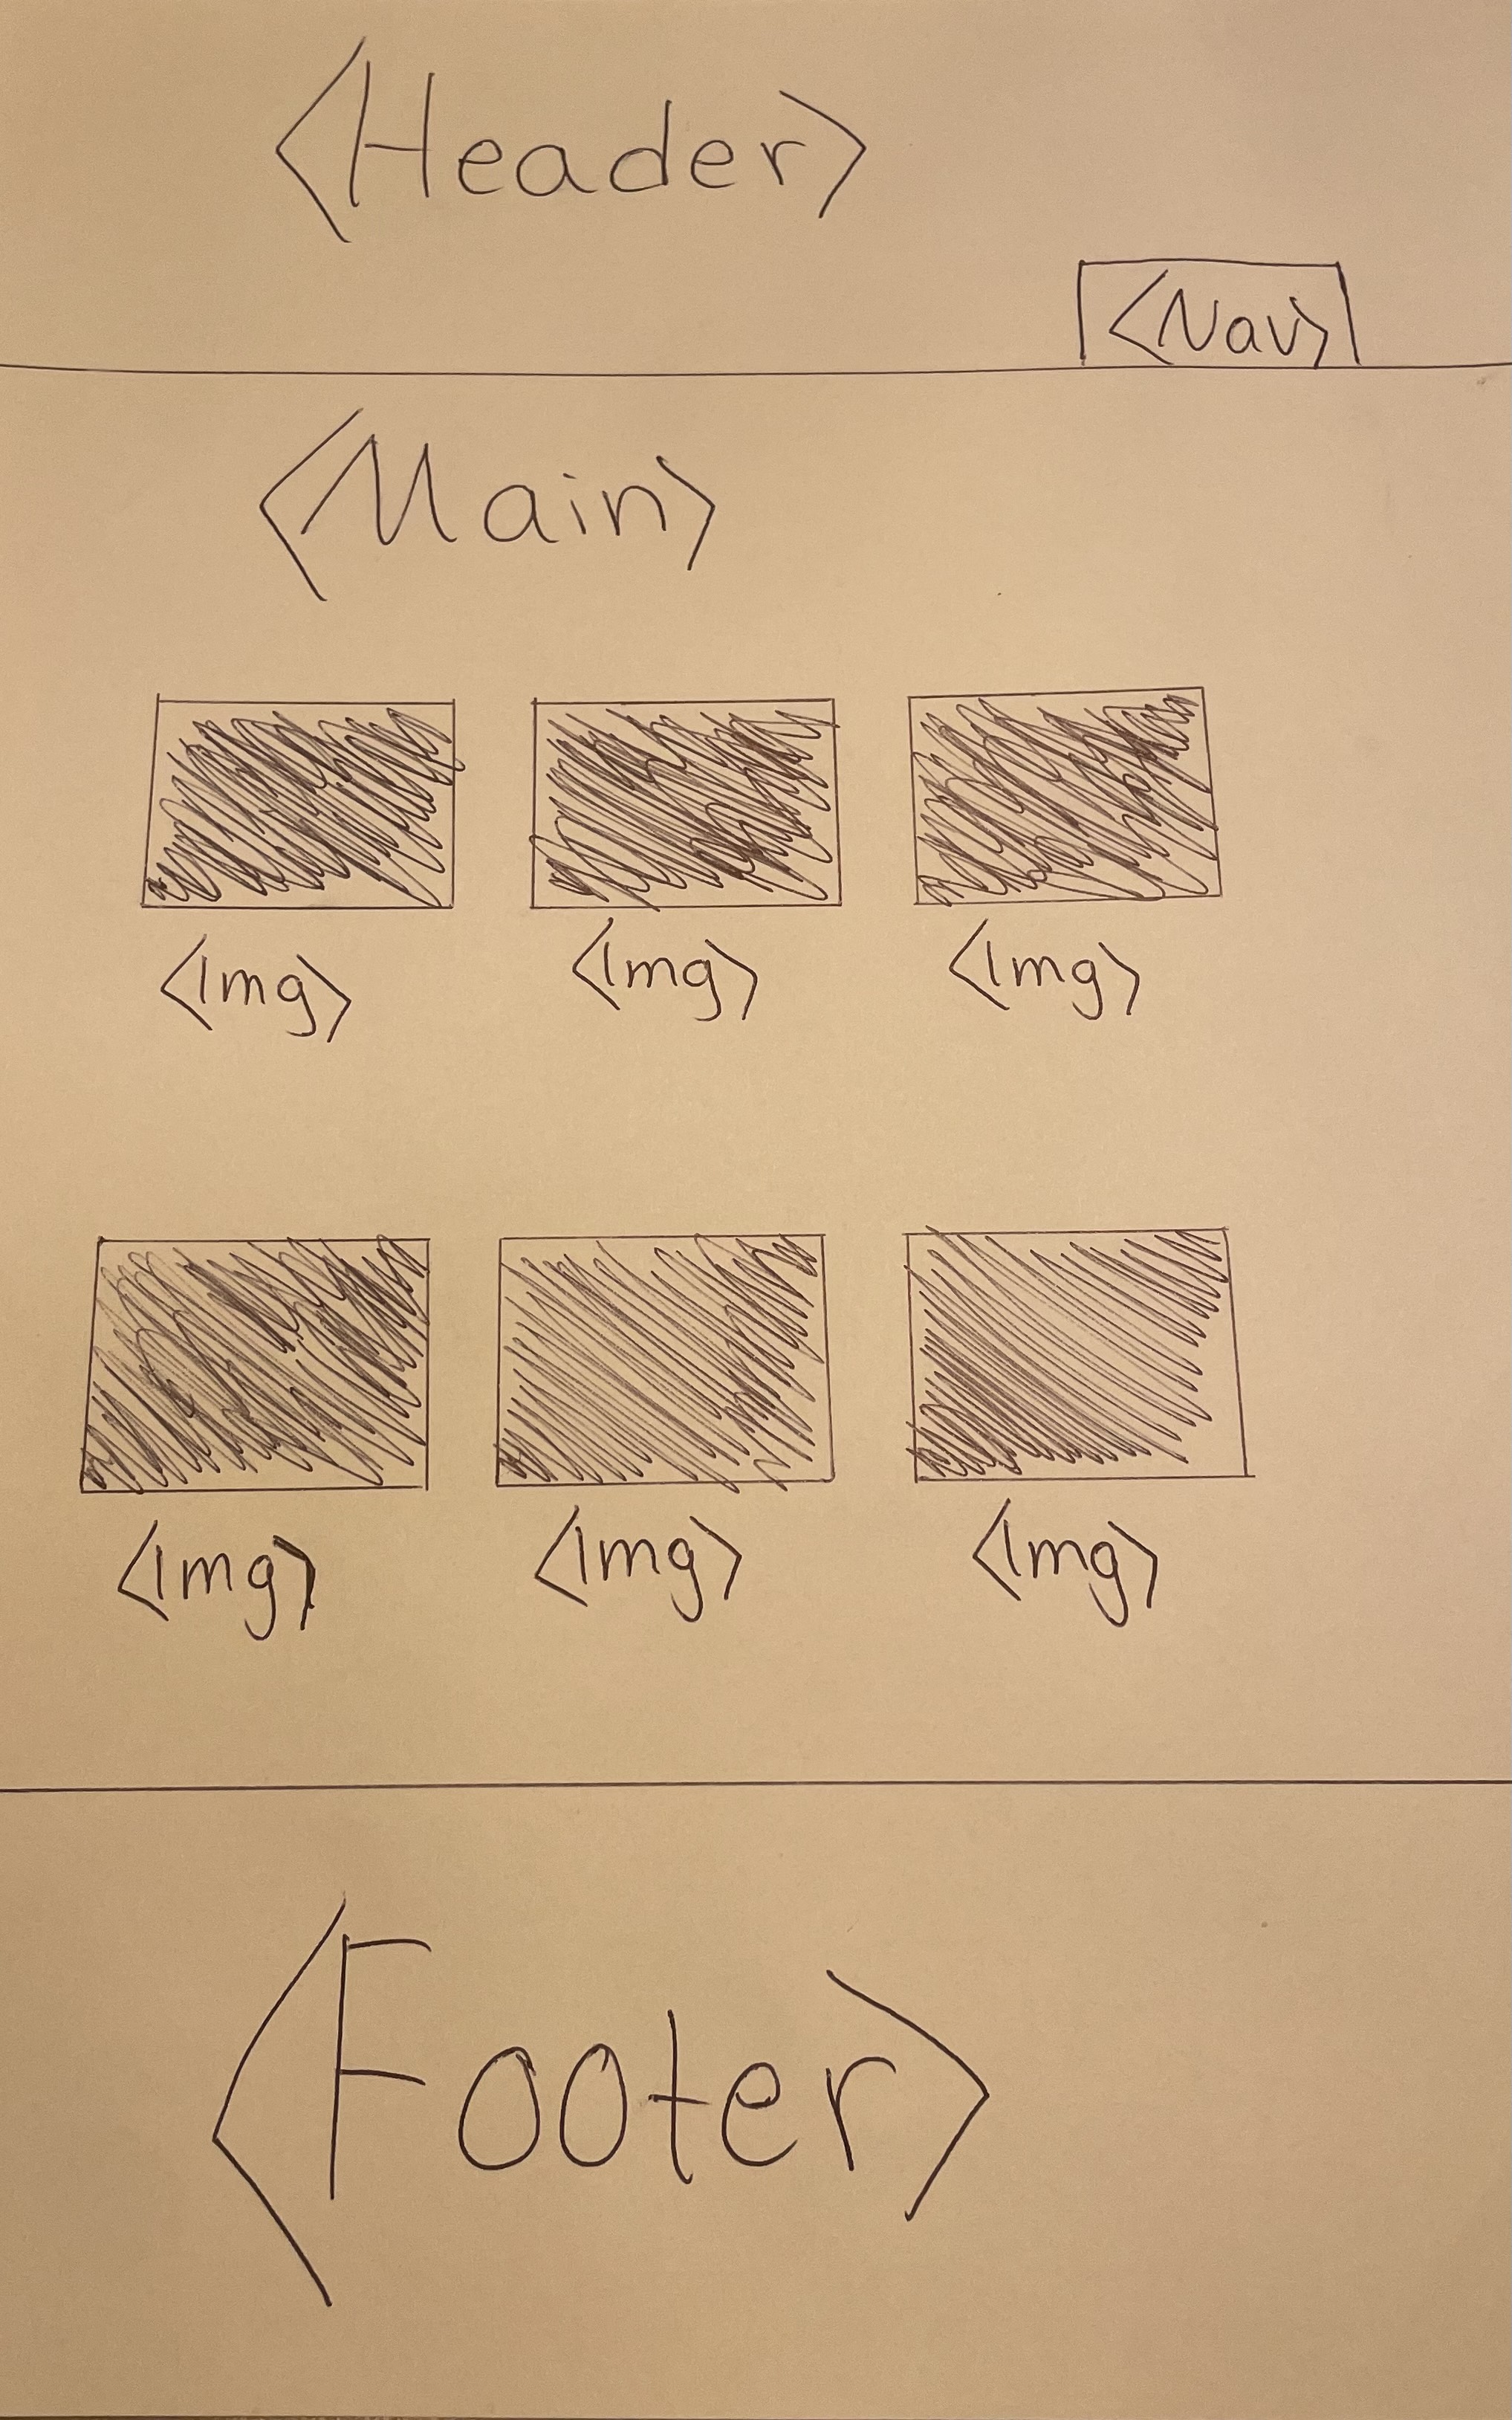 <Header>
<Nav>
<Main>
<Img> <Img> <Img>
<Img> <Img> <Img>
<Footer>